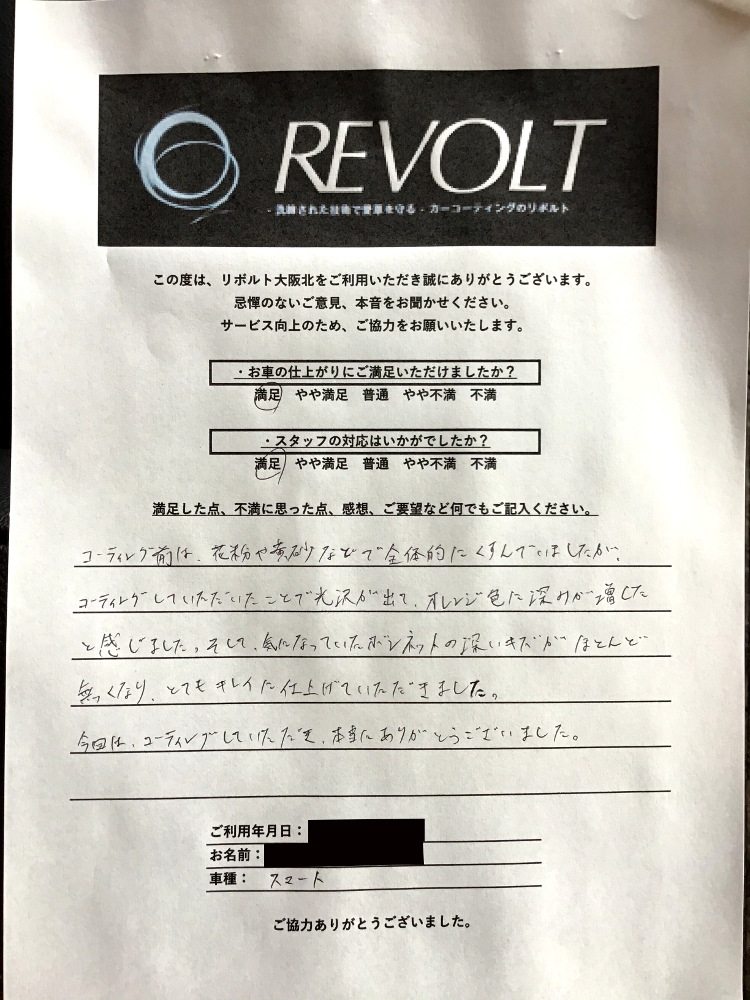 REVOLT
- 洗練された技術で愛車を守る - カーコーティングのリボルト
この度は、リボルト大阪北をご利用いただき誠にありがとうございます。
忌憚のないご意見、本音をお聞かせください。
サービス向上のため、ご協力をお願いいたします。
・お車の仕上がりにご満足いただけましたか？
満足 やや満足 普通 やや不満 不満
・スタッフの対応はいかがでしたか？
満足 やや満足 普通 やや不満 不満
満足した点、不満に思った点、感想、ご要望など何でもご記入ください。
コーティング前は、花粉や黄砂などで全体的にくすんでいましたが、
コーティングしていただいたことで光沢が出て、オレンジ色に深みが増した
と感じました。そして、気になっていたボンネットの深いキズがほとんど
無くなり、とてもキレイに仕上げていただきました。
今回は、コーティングしていただき、本当にありがとうございました。
ご利用年月日：
お名前：
車種： スマート
ご協力ありがとうございました。